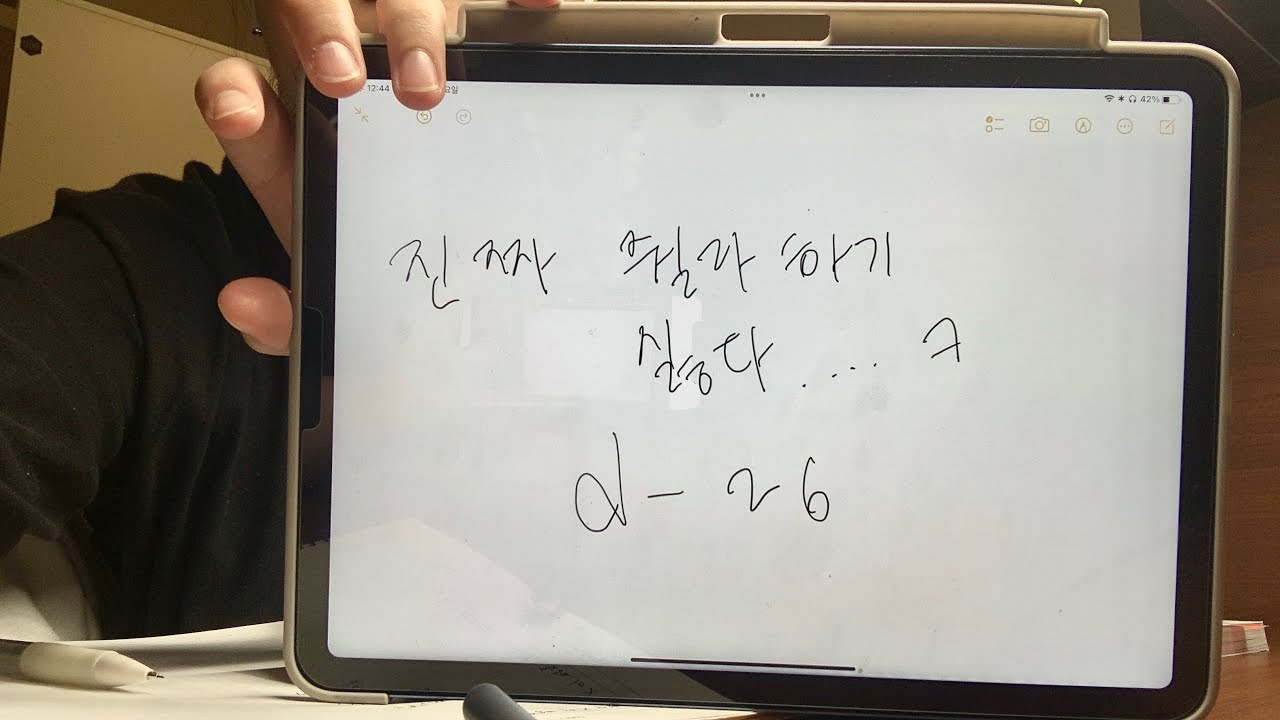 12:44 요일 42%
진짜 하기
싫다 .... ㅋ
d-26